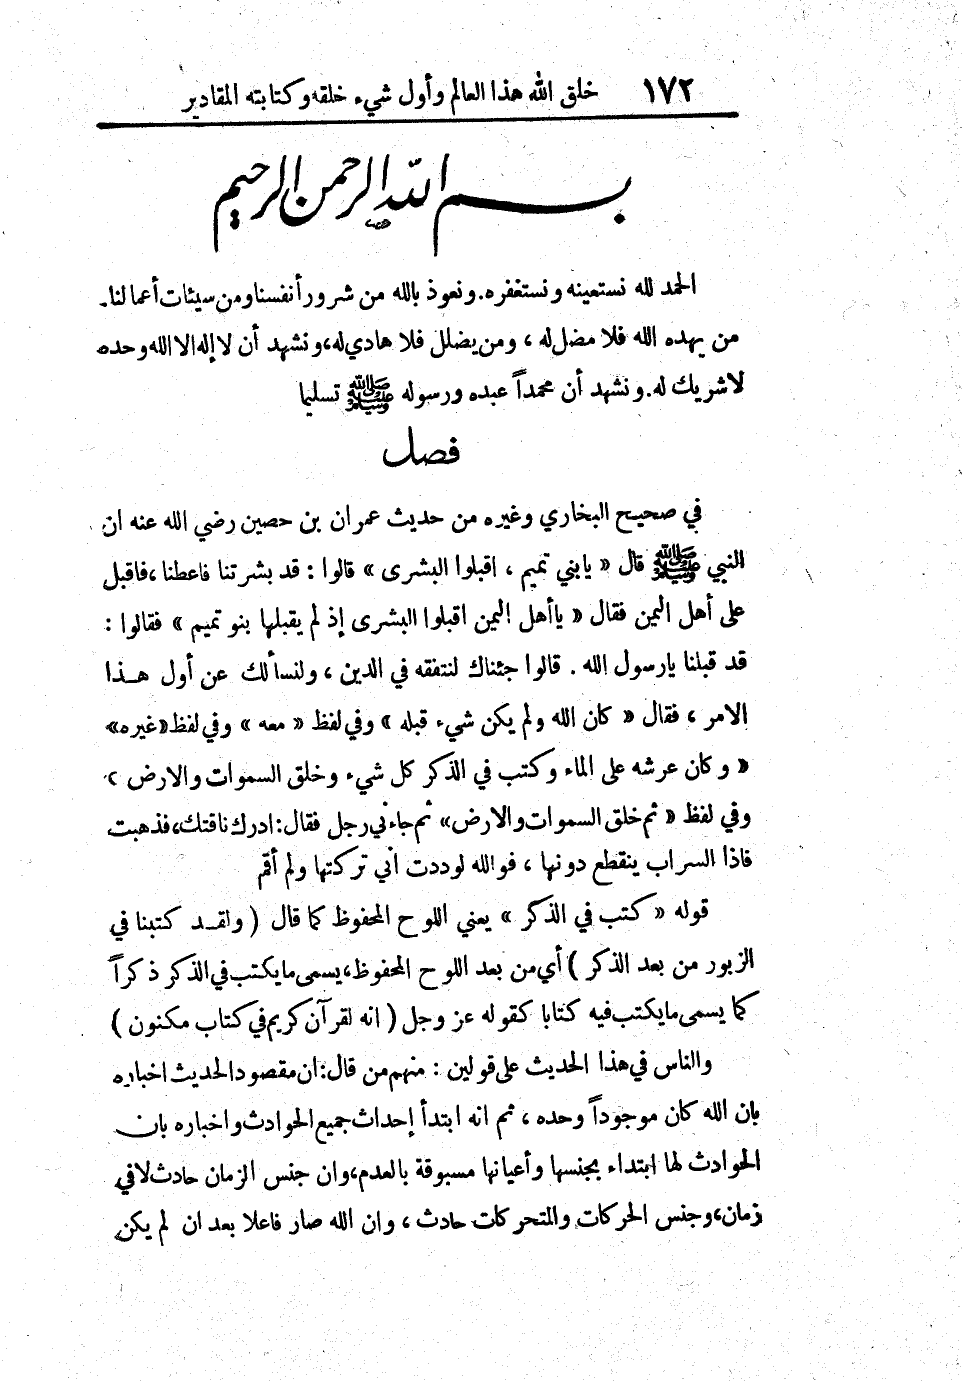 ١٧٢ خلق الله هذا العالم وأول شيء خلقه وكتابته المقادير
بسم الله الرحمن الرحيم
الحمد لله نستعينه ونستغفره. ونعوذ بالله من شرور أنفسنا ومن سيئات أعمالنا.
من يهده الله فلا مضل له ، ومن يضلل فلا هادي له، ونشهد أن لا إله الا الله وحده
لا شريك له. ونشهد أن محمداً عبده ورسوله ﷺ تسليما
فصل
في صحيح البخاري وغيره من حديث عمران بن حصين رضي الله عنه ان
النبي ﷺ قال « يابني تميم ، اقبلوا البشرى » قالوا : قد بشرتنا فاعطنا ، فاقبل
على أهل اليمن فقال « ياأهل اليمن اقبلوا البشرى إذ لم يقبلها بنو تميم » فقالوا :
قد قبلنا يارسول الله . قالوا جئناك لنتفقه في الدين ، ولنسألك عن أول هـذا
الامر ، فقال « كان الله ولم يكن شيء قبله » وفي لفظ « معه » وفي لفظ « غيره»
« وكان عرشه على الماء وكتب في الذكر كل شيء وخلق السموات والارض »
وفي لفظ « ثم خلق السموات والارض» ثم جاءني رجل فقال: ادرك ناقتك، فذهبت
فاذا السراب ينقطع دونها ، فوالله لوددت أني تركتها ولم أقم
قوله « كتب في الذكر » يعني اللوح المحفوظ كما قال ( ولقـد كتبنا في
الزبور من بعد الذكر ) أي من بعد اللوح المحفوظ، يسمى ما يكتب في الذكر ذكراً
كما يسمى ما يكتب فيه كتابا كقوله عز وجل ( انه لقرآن كريم في كتاب مكنون )
والناس في هذا الحديث على قولين : منهم من قال: ان مقصود الحديث اخباره
بان الله كان موجوداً وحده ، ثم انه ابتدأ إحداث جميع الحوادث واخباره بان
الحوادث لها ابتداء بجنسها وأعيانها مسبوقة بالعدم، وان جنس الزمان حادث لا في
زمان، وجنس الحركات والمتحركات حادث ، وان الله صار فاعلا بعد ان لم يكن